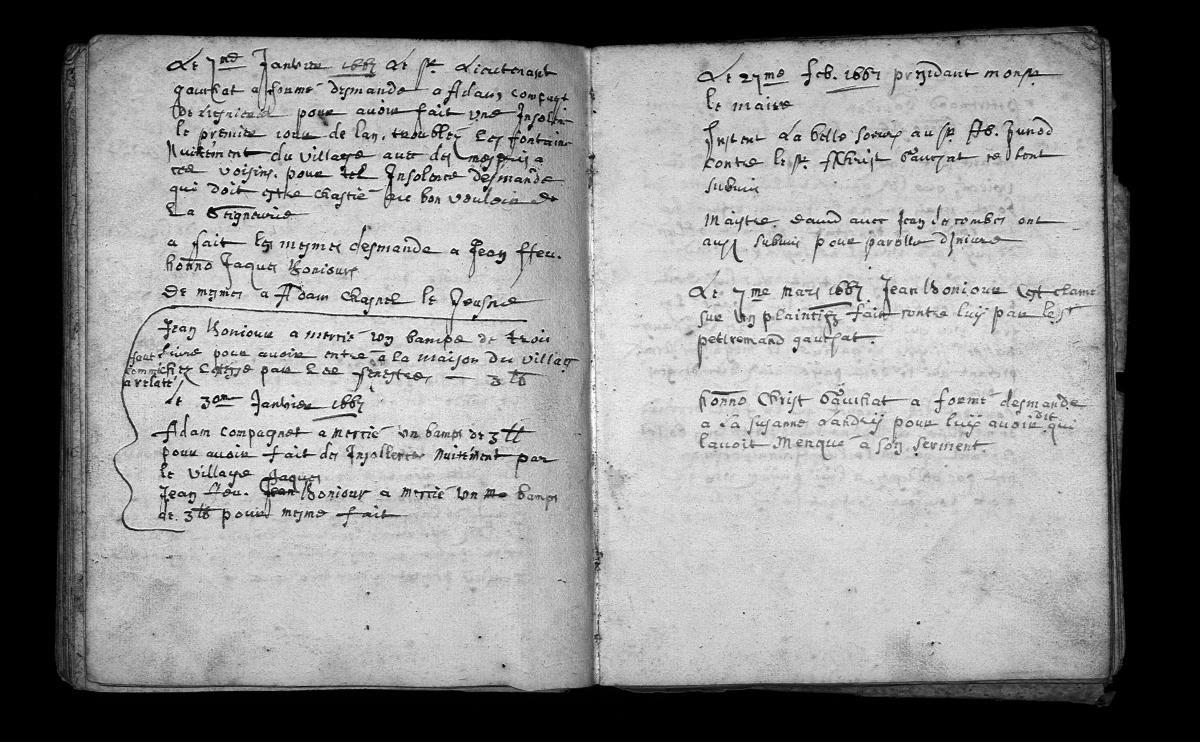 Le 7me Janvier 1667 Le Sr. Lieutenant
gauchat a formé desmande a Adam Compagnet
pour avoir fait une Insolence
le premier jour de lan, troublez Les fontaines
Nuitément du village avec des mespris a
ces voisins. pour tel Insolence desmande
qui doit estre chastié au bon vouloir de
La Seigneurie
a fait les mesmes desmande a Jean ffeu.
honno Jaques Boniour
De mesmes a Adam Chasnel le Jeusne
Jean Boniour a mercié un bampt de trois
livre pour avoir entré a la maison du village
par Les fenestres — 3 lb
faut
a relaté
Le 30me Janvier 1667
Adam Compagnet a mercié un bampt de 3 lb
pour avoir fait des Insollences nuitément par
le village
Jaques
Jean ffeu. Jean Boniour a mercié un bampt
de 3 lb pour mesme fait
Le 27me feb. 1667 presidant monsr
le maire
Instent La belle soeur au Sr. Ab. Junod
contre le Sr. Christ Gauchat se sont
submis
Maistre david avec Jean des combes ont
ausy submis pour parolle d'injure
Le 7me mars 1667 Jean Boniour est clamé
sur un plaintif fait contre luy par le Sr
petremand gauchat.
honno Christ Gauchat a formé desmande
a La Susanne d'andrey pour luy avoir dit qui
lavoit Menque a son serment